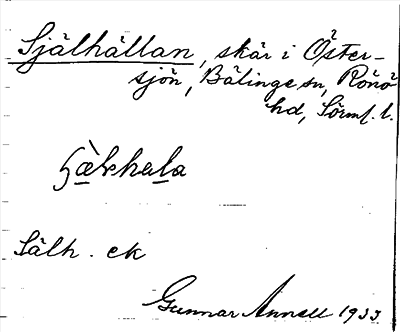 Själhällan, skär i Öster-
sjön, Bälinge sn, Rönö
hd, Sörml. l.
Sälh. ek
Gunnar Annell 1933